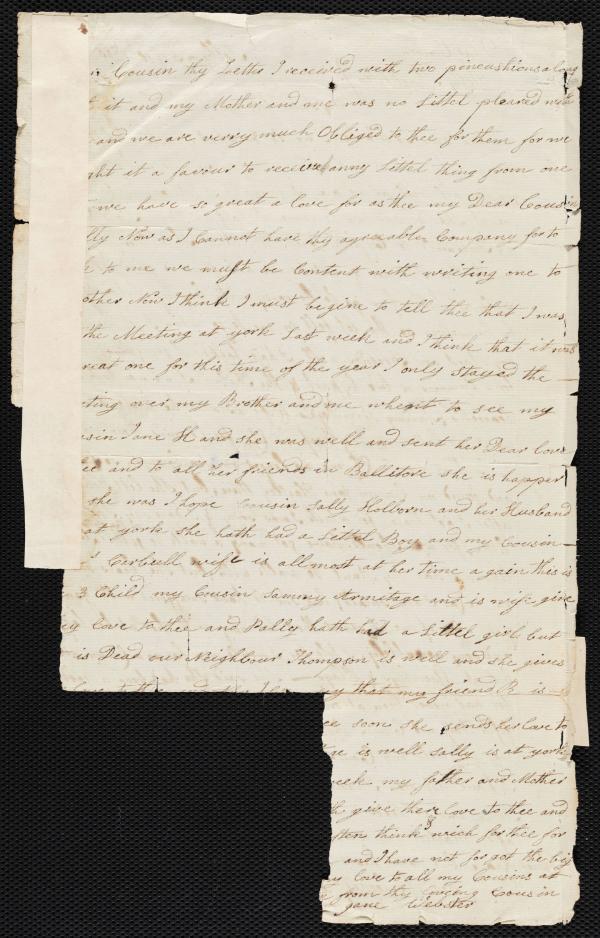 Cousin thy Letter I received with two pincushions along
it and my Mother and me was no Littel pleased with
and we are verry much Obliged to thee for them for we
ght it a favour to receive anny Littel thing from one
we have so great a love for as thee my Dear Cousin
lly Now as I Cannot have thy agreeable Company for to
k to me we must be Content with writing one to
other Now I think I must begine to tell thee that I was
the Meeting at york Last week and I think that it was
reat one for this time of the year I only stayed the
eting over my Brother and me whent to see my
usin Jane H and she was well and sent her Dear love
ee and to all her friends in Ballitore she is happer
she was I hope Cousin Sally Holborn and her Husband
at york she hath had a Littel Boy and my Cousin
wife is allmost at her time a gain this is
3 Child my Cousin Sammy Armitage and is wife give
love to thee and Pally hath had a Littel girl but
is Dead our Neighbour Thompson is well and she gives
love to thee and that my friend B is
ee soon she sends her love to
is well sally is at york
eek my father and Mother
give there love to thee and
ften think wich for thee for
and I have not for got the big
love to all my Cousins at
from thy loveing Cousin
Jane Webster